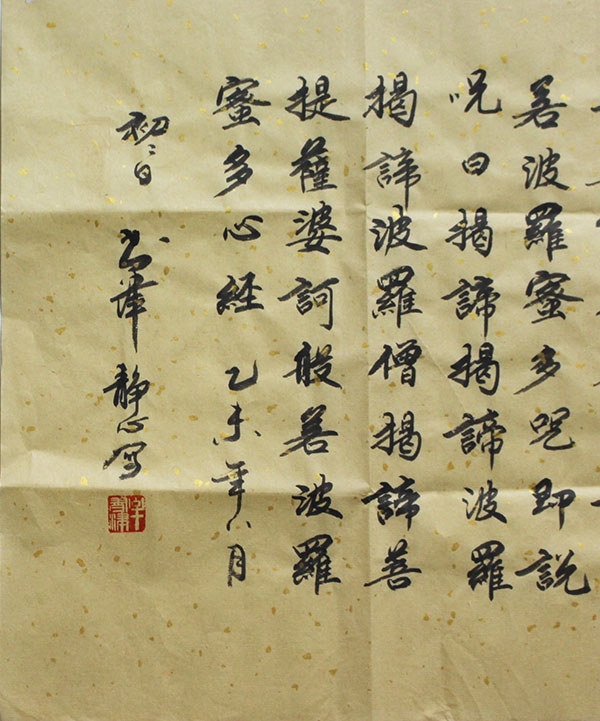 若波羅蜜多咒即説
呪曰揭諦揭諦波羅
揭諦波羅僧揭諦菩
提薩婆訶般若波羅
蜜多心経 乙未年八月
初二日 華 静心写